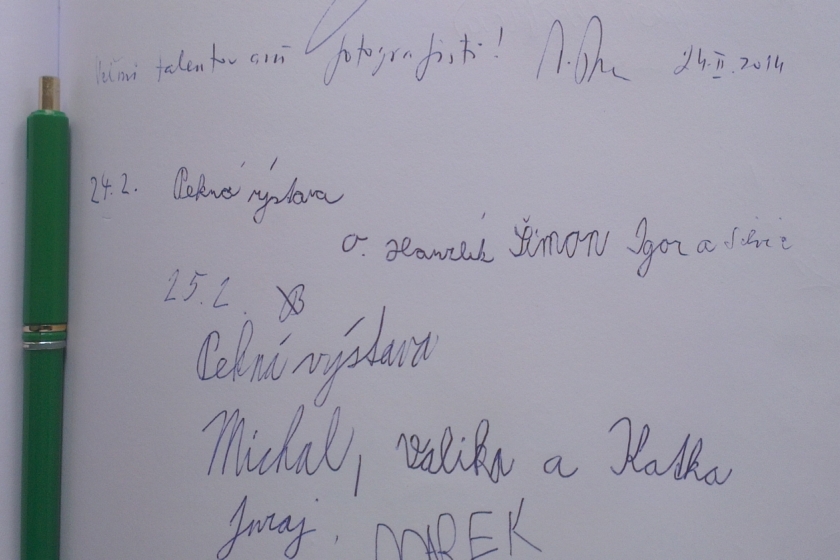 Veľmi talentovaní fotografisti! 24.II.2014
24.2. Pekná výstava
O. Šimon Igor a
25.2.
Pekná výstava
Michal, Valika a Katka
Juraj. MAREK